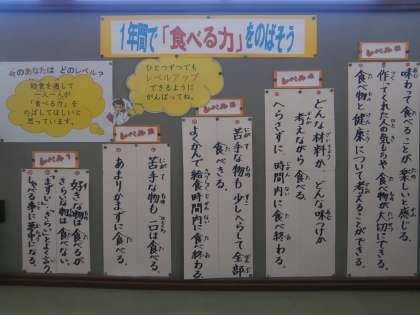 1年間で「食べる力」をのばそう
今のあなたは どのレベル?
給食を通して
一人一人が
「食べる力」を
のばしてほしいと
思っています。
ひとつずつでも
レベルアップ
できるように
がんばってね。
レベル1
好きな物は食べるが
きらいな物は食べない。
「まずい」「きらい」とよく言う。
しゃべる事に夢中になる。
レベル2
苦手な物も一口は食べる。
あまりかまずに食べる。
レベル3
苦手な物も少しへらして全部
食べきる。
よくかんで給食時間内に食べ終わる。
レベル4
どんな材料か どんな味つけか
考えながら食べる。
へらさずに、時間内に食べ終わる。
レベル5
味わって食べることが楽しいと感じる。
作ってくれた人の気もちや食べ物が大切にできる。
食べ物と健康について考えることができる。